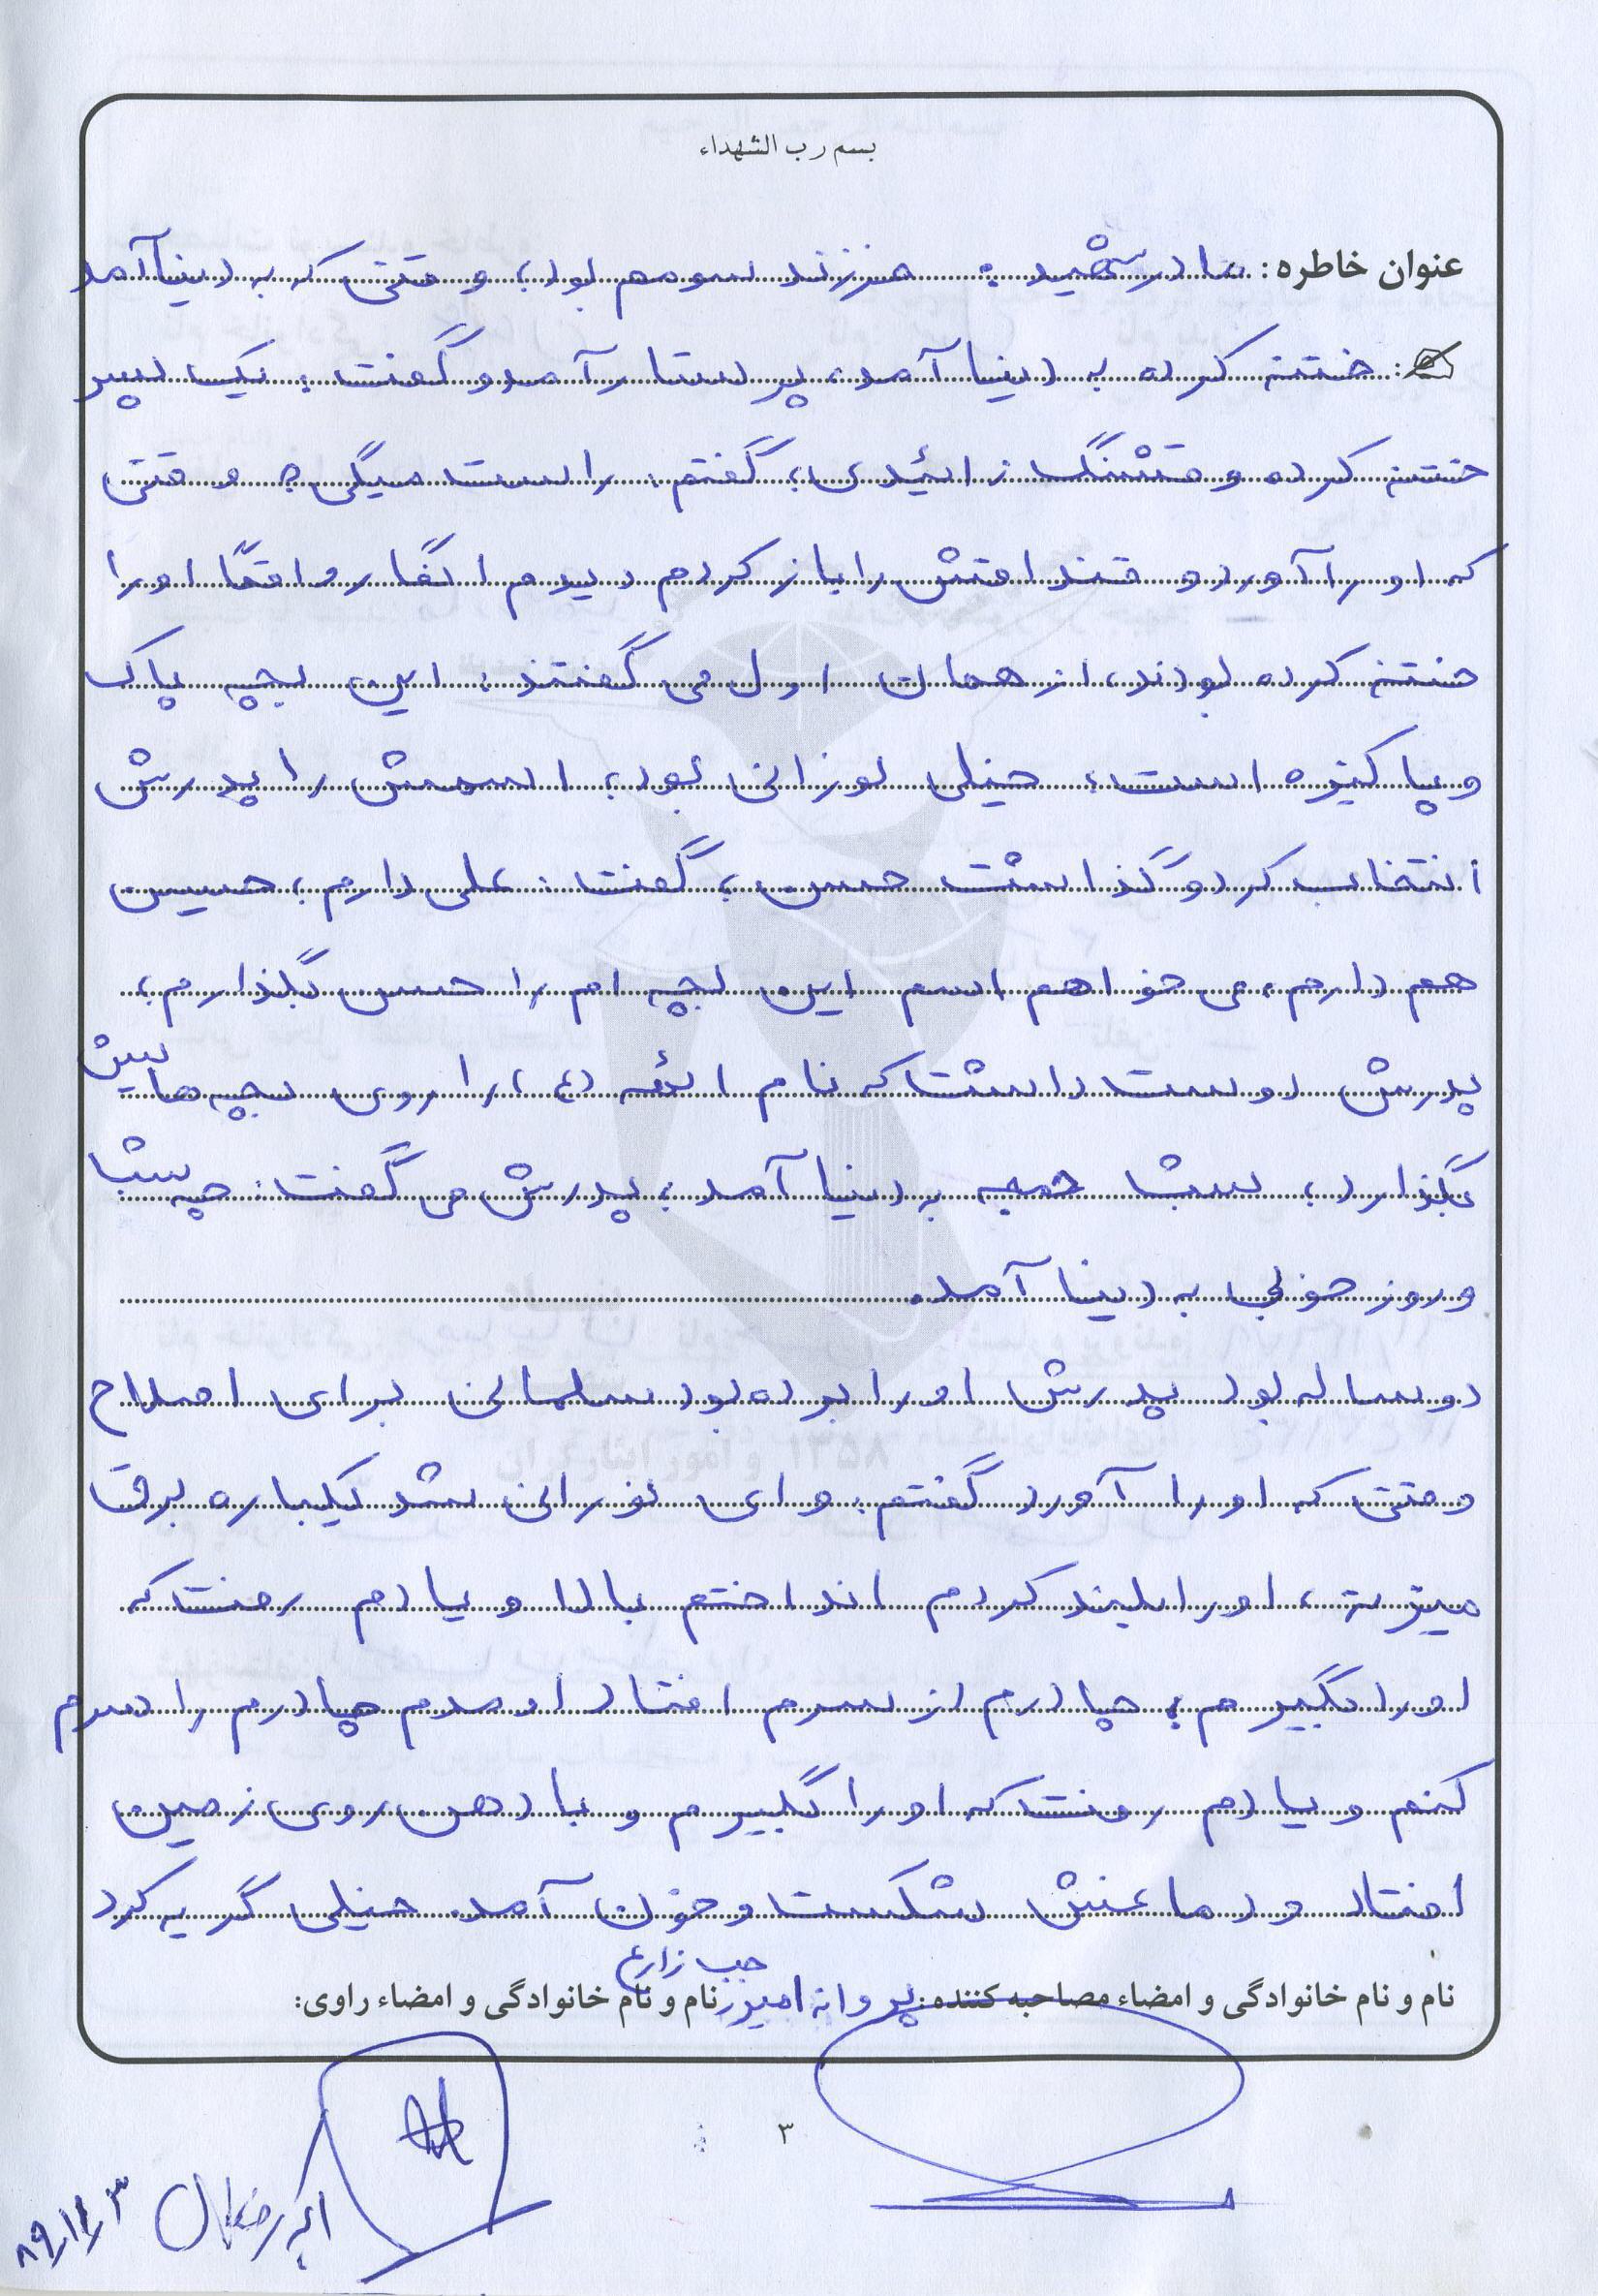 بسم رب الشهداء
عنوان خاطره: مادر شهید: فرزند سومم بود، وقتی که به دنیا آمد
ختنه کرده به دنیا آمد، پرستار آمد و گفت: یک پسر
ختنه کرده و قشنگ زائیدی، گفتم: راست میگی؟ وقتی
که او را آورد و قنداقش را باز کردم دیدم انگار واقعاً او را
ختنه کرده بودند، از همان اول می گفتند: این بچه پاک
و پاکیزه است، خیلی نورانی بود، اسمش را پدرش
انتخاب کرد و گذاشت حسن، گفت: علی دارم، حسین
هم دارم، می خواهم اسم این بچه ام را حسن بگذارم،
پدرش دوست داشت که نام ائمه (ع) را روی بچه هایش
بگذارد، شب جمعه به دنیا آمد، پدرش می گفت: چه شب
و روز خوبی به دنیا آمد.
دو ساله بود پدرش او را برده بود سلمانی برای اصلاح
وقتی که او را آورد گفتم: وای نورانی شد یکباره برق
میزنه، او را بلند کردم انداختم بالا و یادم رفت که
او را بگیرم، چادرم از سرم افتاد اومدم چادرم را سرم
کنم و یادم رفت که او را بگیرم و با دهن روی زمین
افتاد و دماغش شکست و خون آمد. خیلی گریه کرد
نام و نام خانوادگی و امضاء مصاحبه کننده: پروانه امیدر نام و نام خانوادگی و امضاء راوی:
زارع
۳
۸۹/۱۲/۳